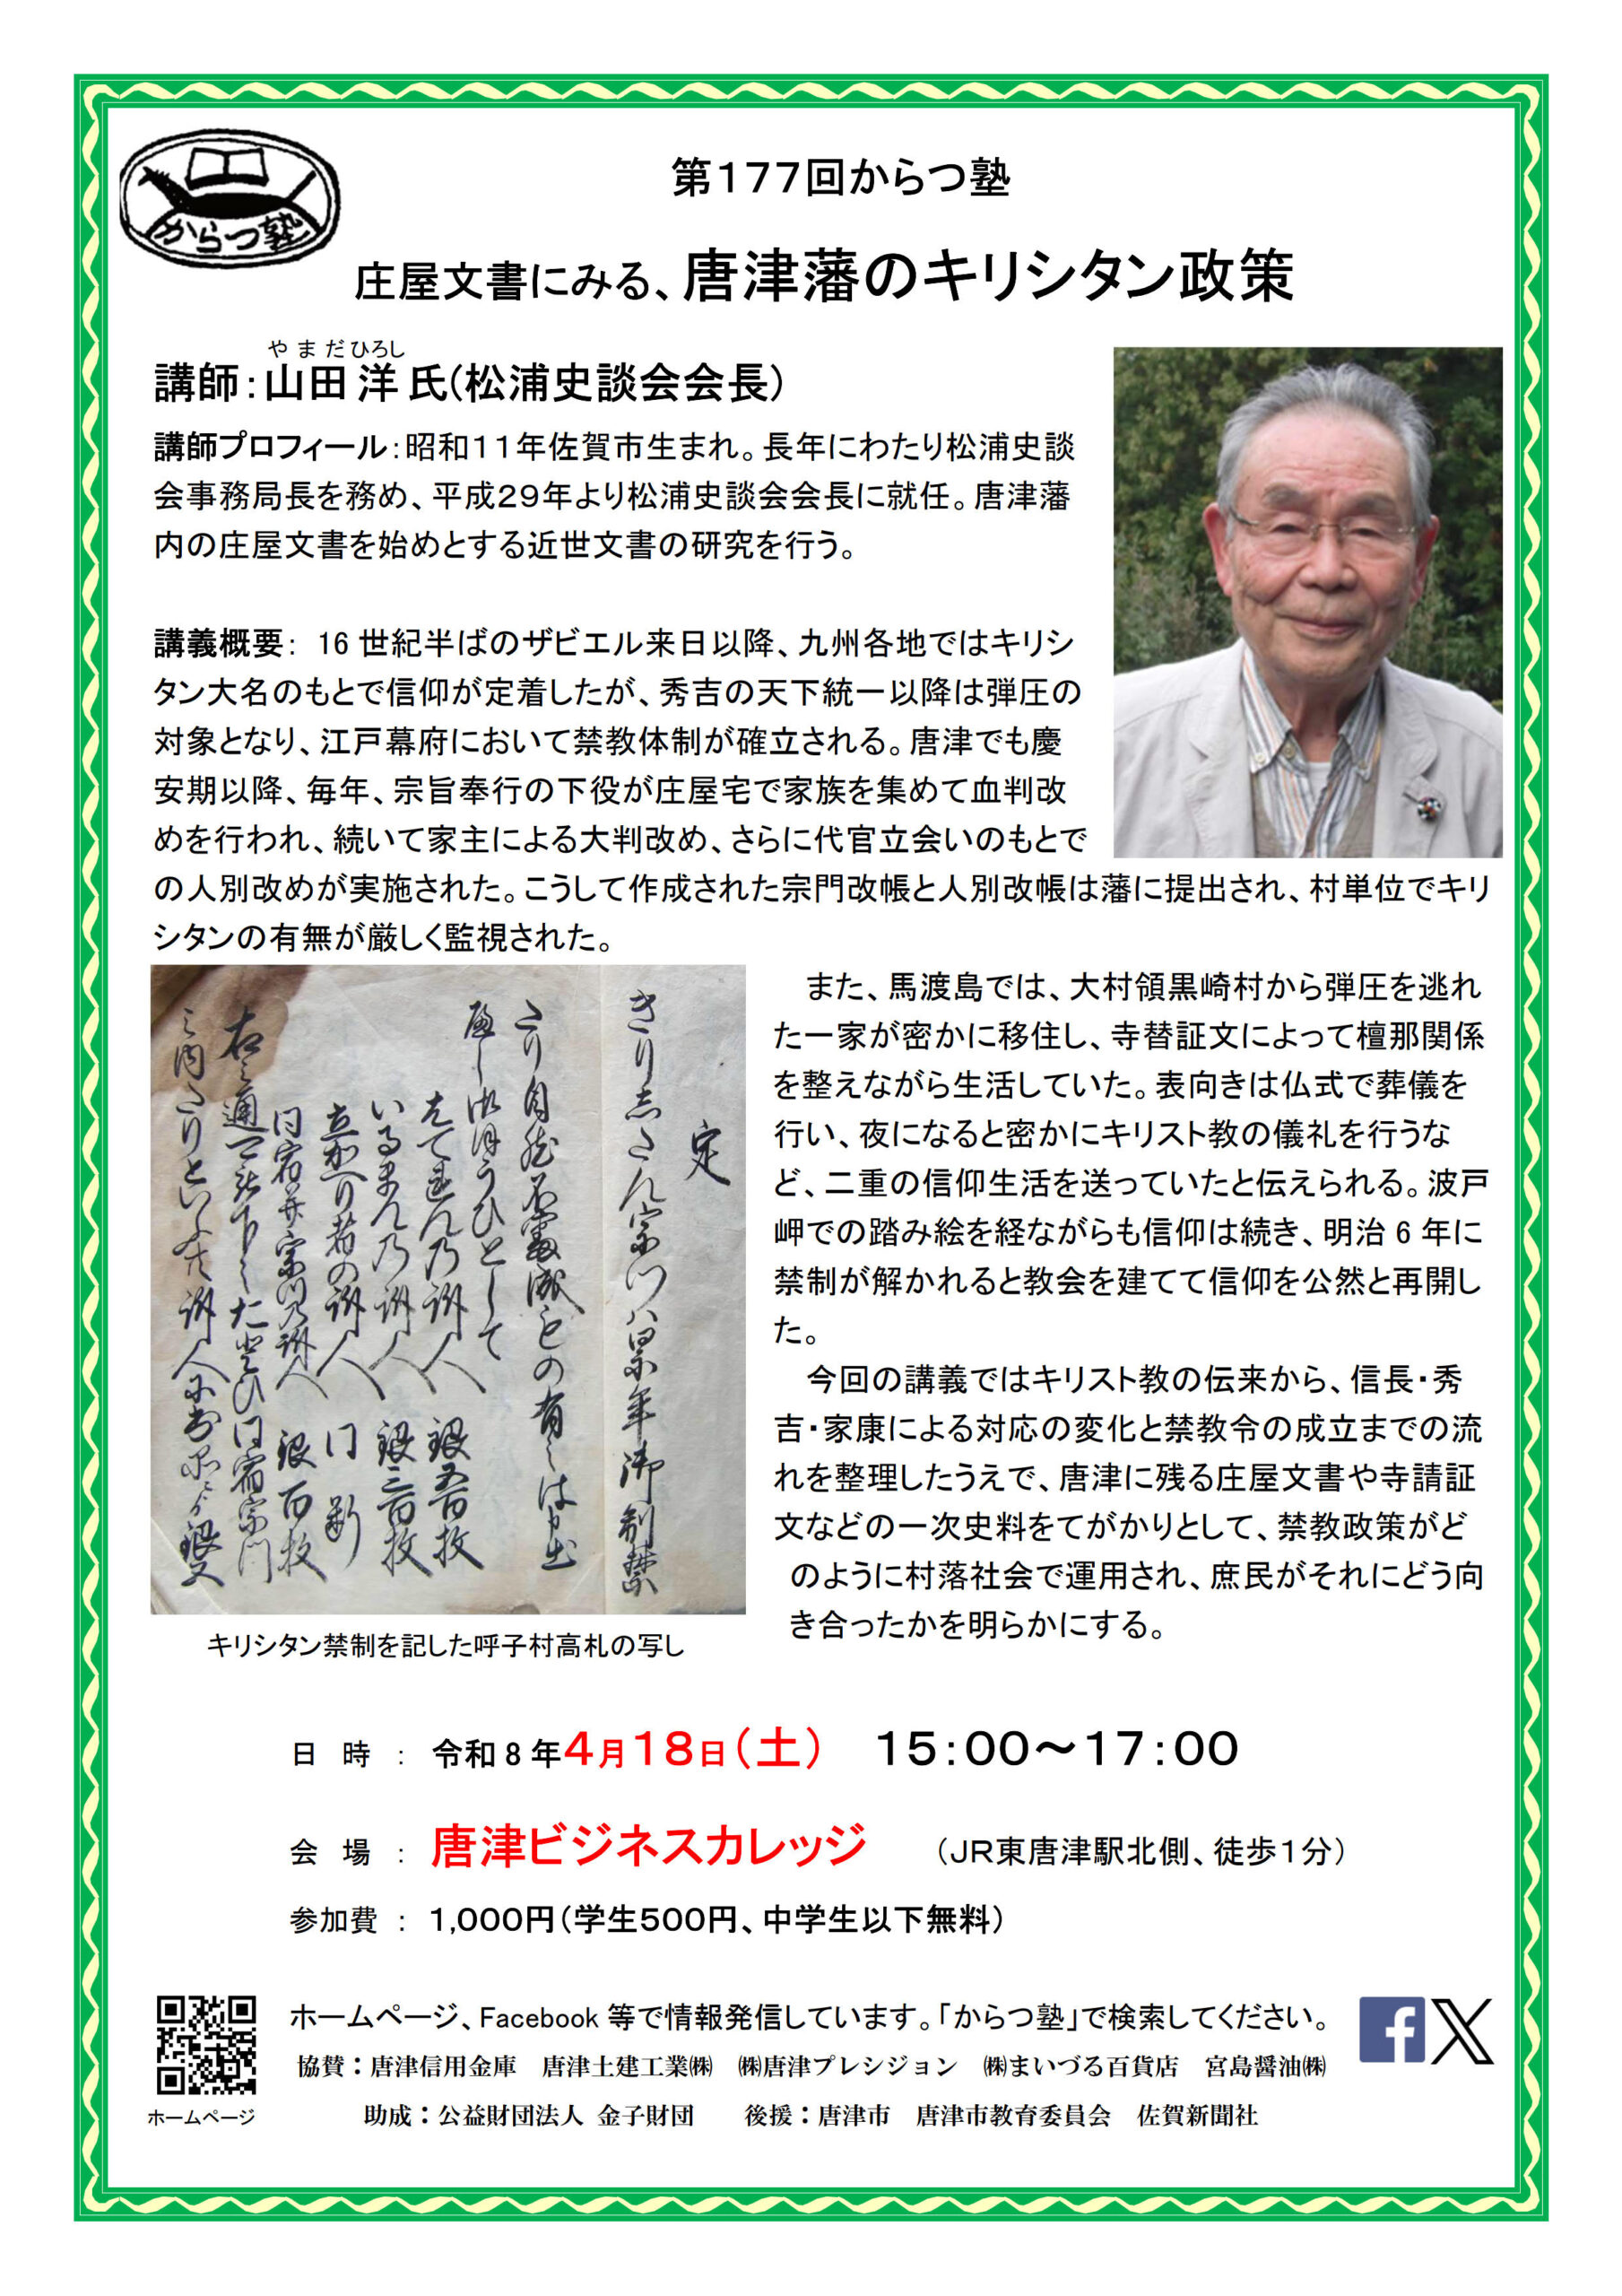 からつ塾
第177回からつ塾
庄屋文書にみる、唐津藩のキリシタン政策
やまだひろし
講師:山田 洋 氏(松浦史談会会長)
講師プロフィール:昭和11年佐賀市生まれ。長年にわたり松浦史談
会事務局長を務め、平成29年より松浦史談会会長に就任。唐津藩
内の庄屋文書を始めとする近世文書の研究を行う。
講義概要: 16 世紀半ばのザビエル来日以降、九州各地ではキリシ
タン大名のもとで信仰が定着したが、秀吉の天下統一以降は弾圧の
対象となり、江戸幕府において禁教体制が確立される。唐津でも慶
安期以降、毎年、宗旨奉行の下役が庄屋宅で家族を集めて血判改
めを行われ、続いて家主による大判改め、さらに代官立会いのもとで
の人別改めが実施された。こうして作成された宗門改帳と人別改帳は藩に提出され、村単位でキリ
シタンの有無が厳しく監視された。
また、馬渡島では、大村領黒崎村から弾圧を逃れ
た一家が密かに移住し、寺替証文によって檀那関係
を整えながら生活していた。表向きは仏式で葬儀を
行い、夜になると密かにキリスト教の儀礼を行うな
ど、二重の信仰生活を送っていたと伝えられる。波戸
岬での踏み絵を経ながらも信仰は続き、明治 6 年に
禁制が解かれると教会を建てて信仰を公然と再開し
た。
今回の講義ではキリスト教の伝来から、信長・秀
吉・家康による対応の変化と禁教令の成立までの流
れを整理したうえで、唐津に残る庄屋文書や寺請証
文などの一次史料をてがかりとして、禁教政策がど
のように村落社会で運用され、庶民がそれにどう向
き合ったかを明らかにする。
定
きりしたん宗門ハ累年御制禁
キリシタン禁制を記した呼子村高札の写し
日 時 : 令和 8 年4月18日(土) 15:00～17:00
会 場 : 唐津ビジネスカレッジ (JR東唐津駅北側、徒歩1分)
参加費 : 1,000円(学生500円、中学生以下無料)
ホームページ、Facebook 等で情報発信しています。「からつ塾」で検索してください。
協賛:唐津信用金庫 唐津土建工業㈱ ㈱唐津プレシジョン ㈱まいづる百貨店 宮島醤油㈱
ホームページ
助成:公益財団法人 金子財団 後援:唐津市 唐津市教育委員会 佐賀新聞社